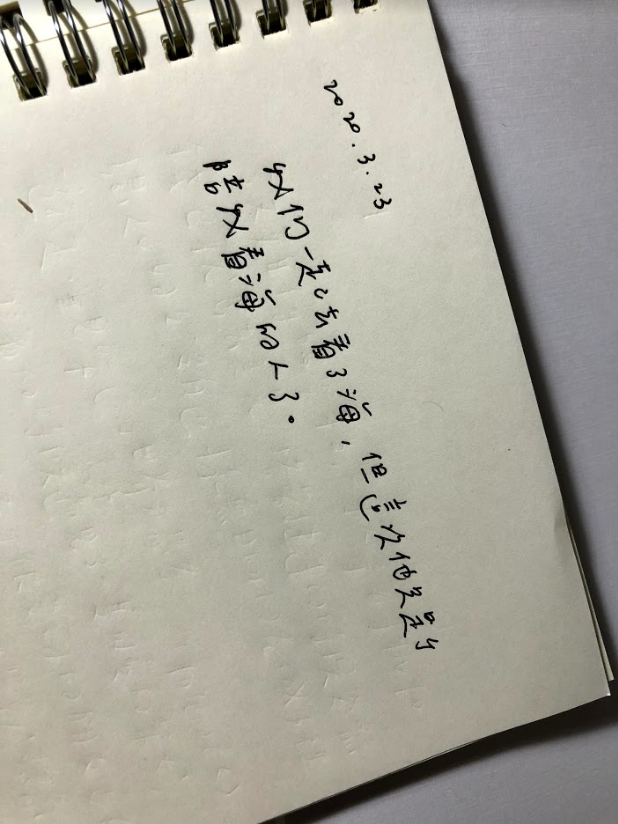 2020.3.23
我们一起去看了海，但這次他只是个
陪我看海的人了。